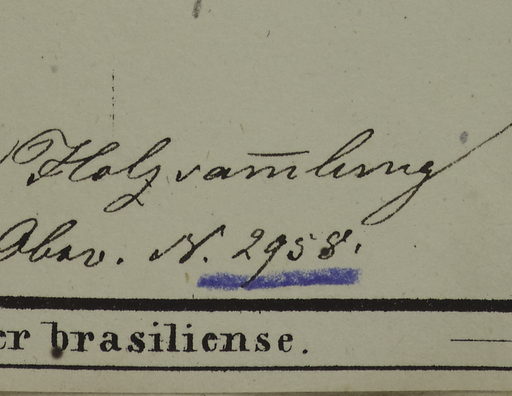 Holzsam̅lung
Obsv. N. 2958.
er brasiliense.